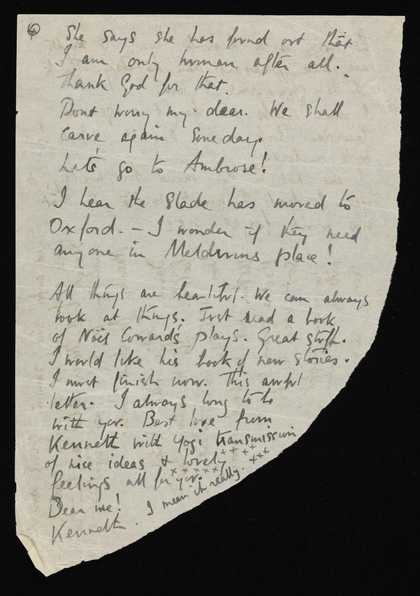 6 She says she has found out that
I am only human after all.
Thank God for that.
Dont worry my dear. We shall
carve again some day.
Let's go to Ambrose!
I hear the Slade has moved to
Oxford. — I wonder if they need
anyone in Meldrums place!
All things are beautiful. We can always
look at things. Just read a book
of Noel Cowards plays. Great stuff.
I would like his book of new stories.
I must finish now. This awful
letter. I always long to be
with you. Best love from
Kenneth with Yogi transmission
of nice ideas & lovely ++++
feelings all for you. ×××××× ×××
Dear me! I mean it really.
Kenneth.